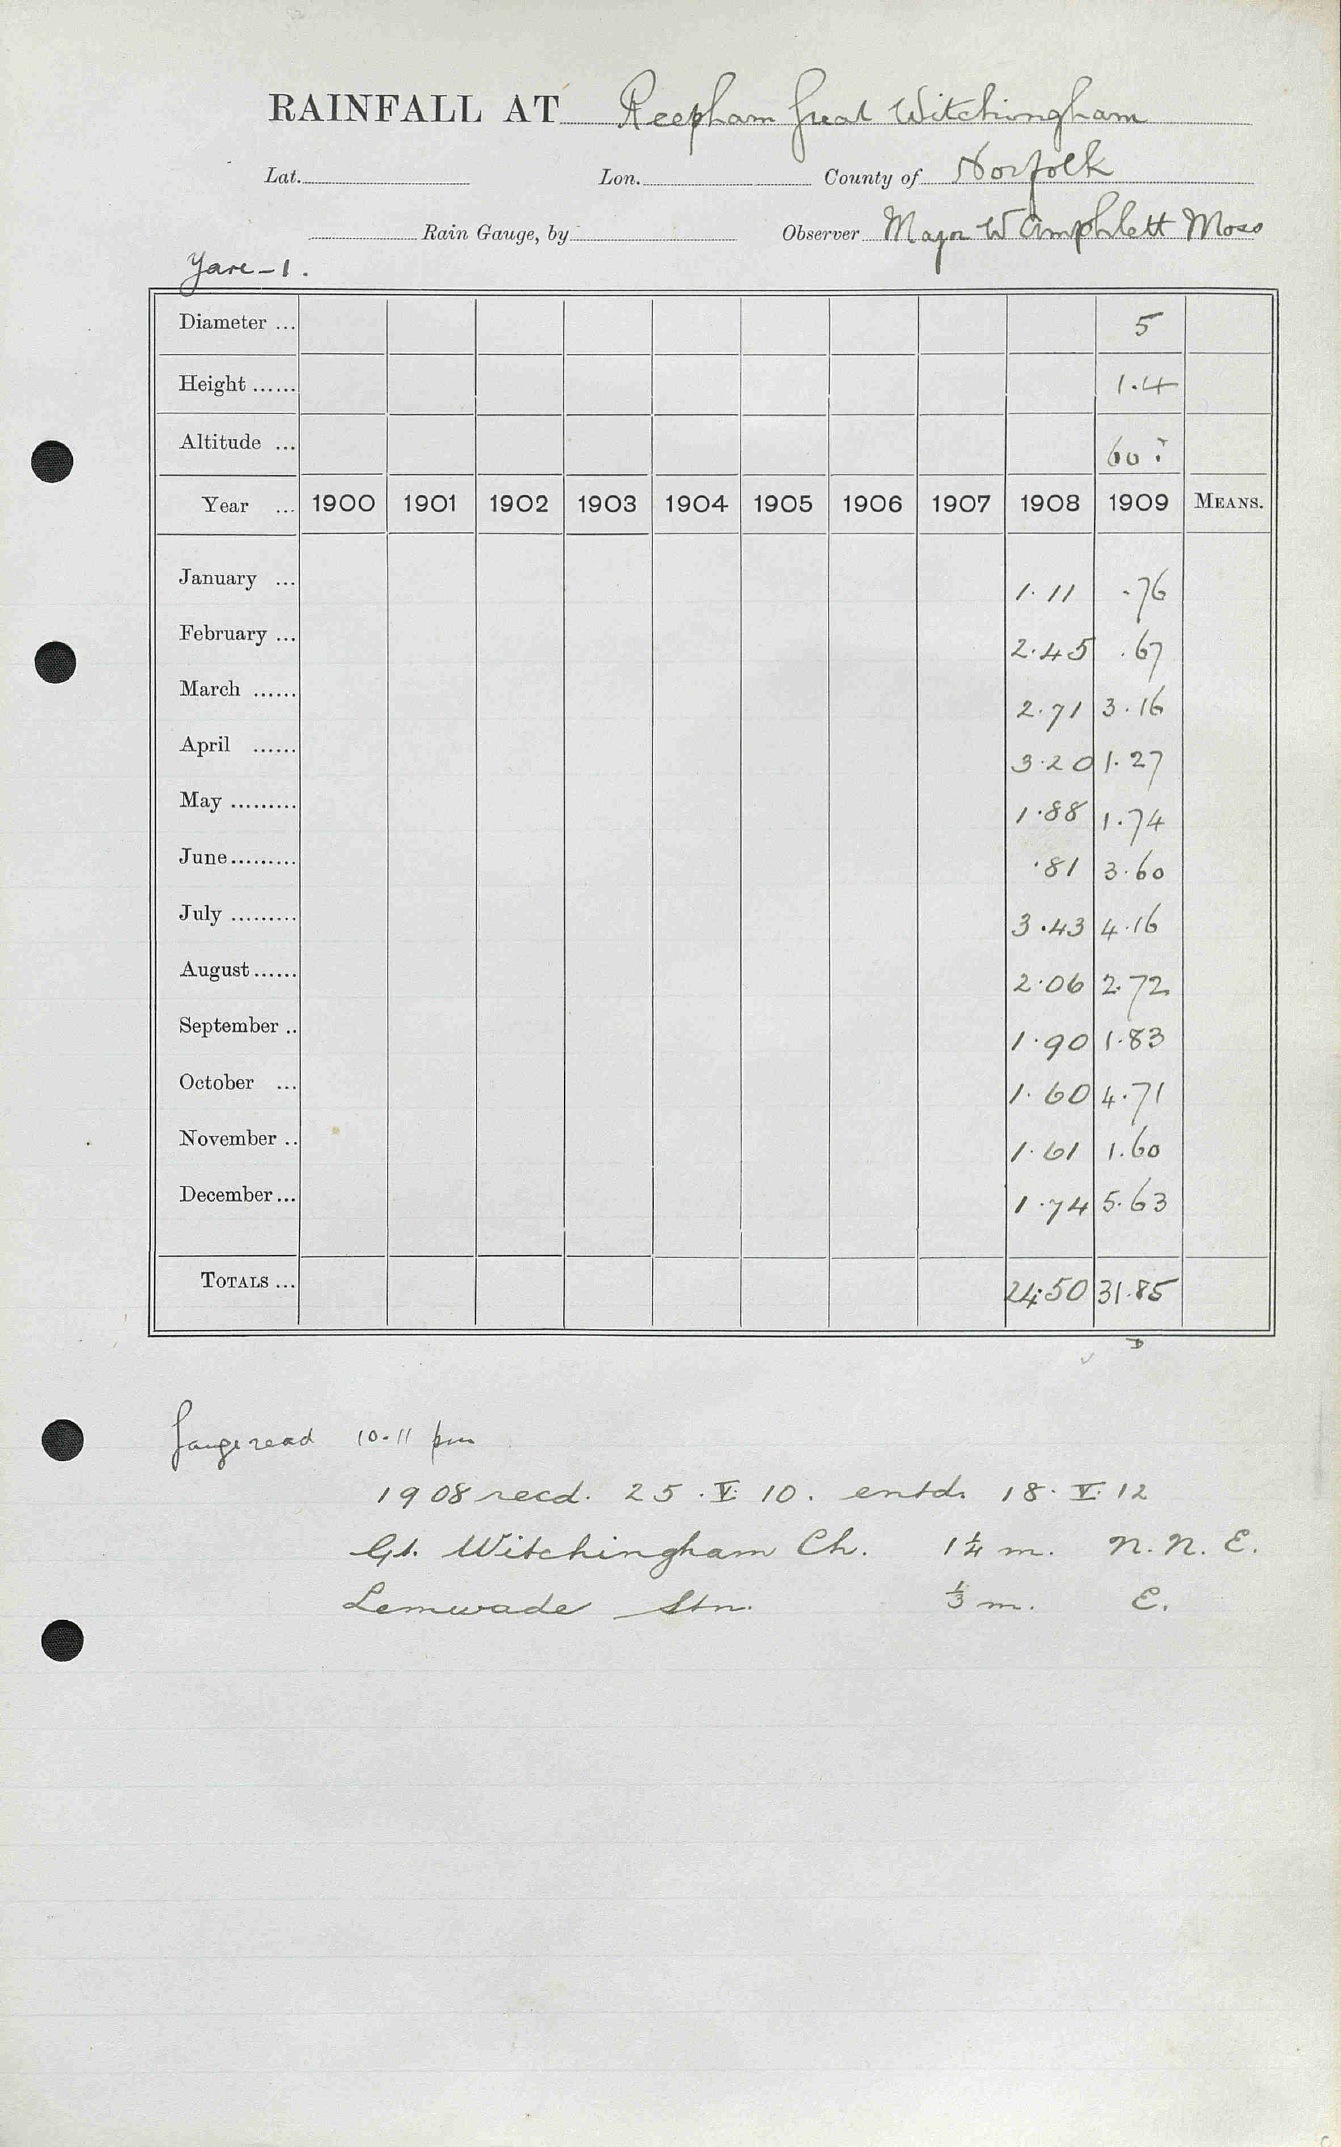 RAINFALL AT Reepham Great Witchingham
Lat. Lon. County of Norfolk
Rain Gauge, by Observer Major W Amphlett Moss
Yare - 1.
Diameter ... 5
Height ...... 1.4
Altitude ... 60 ?
Year ... 1900 1901 1902 1903 1904 1905 1906 1907 1908 1909 MEANS.
January ... 1.11 .76
February ... 2.45 .67
March ...... 2.71 3.16
April ...... 3.20 1.27
May ......... 1.88 1.74
June ......... .81 3.60
July ......... 3.43 4.16
August ...... 2.06 2.72
September .. 1.90 1.83
October ... 1.60 4.71
November .. 1.61 1.60
December ... 1.74 5.63
TOTALS ... 24.50 31.85
Gauge read 10-11 pm
1908 recd. 25.V.10. entd. 18.V.12
Gt. Witchingham Ch. 1¼ m. N.N.E.
Lenwade Stn. ⅓ m. E.